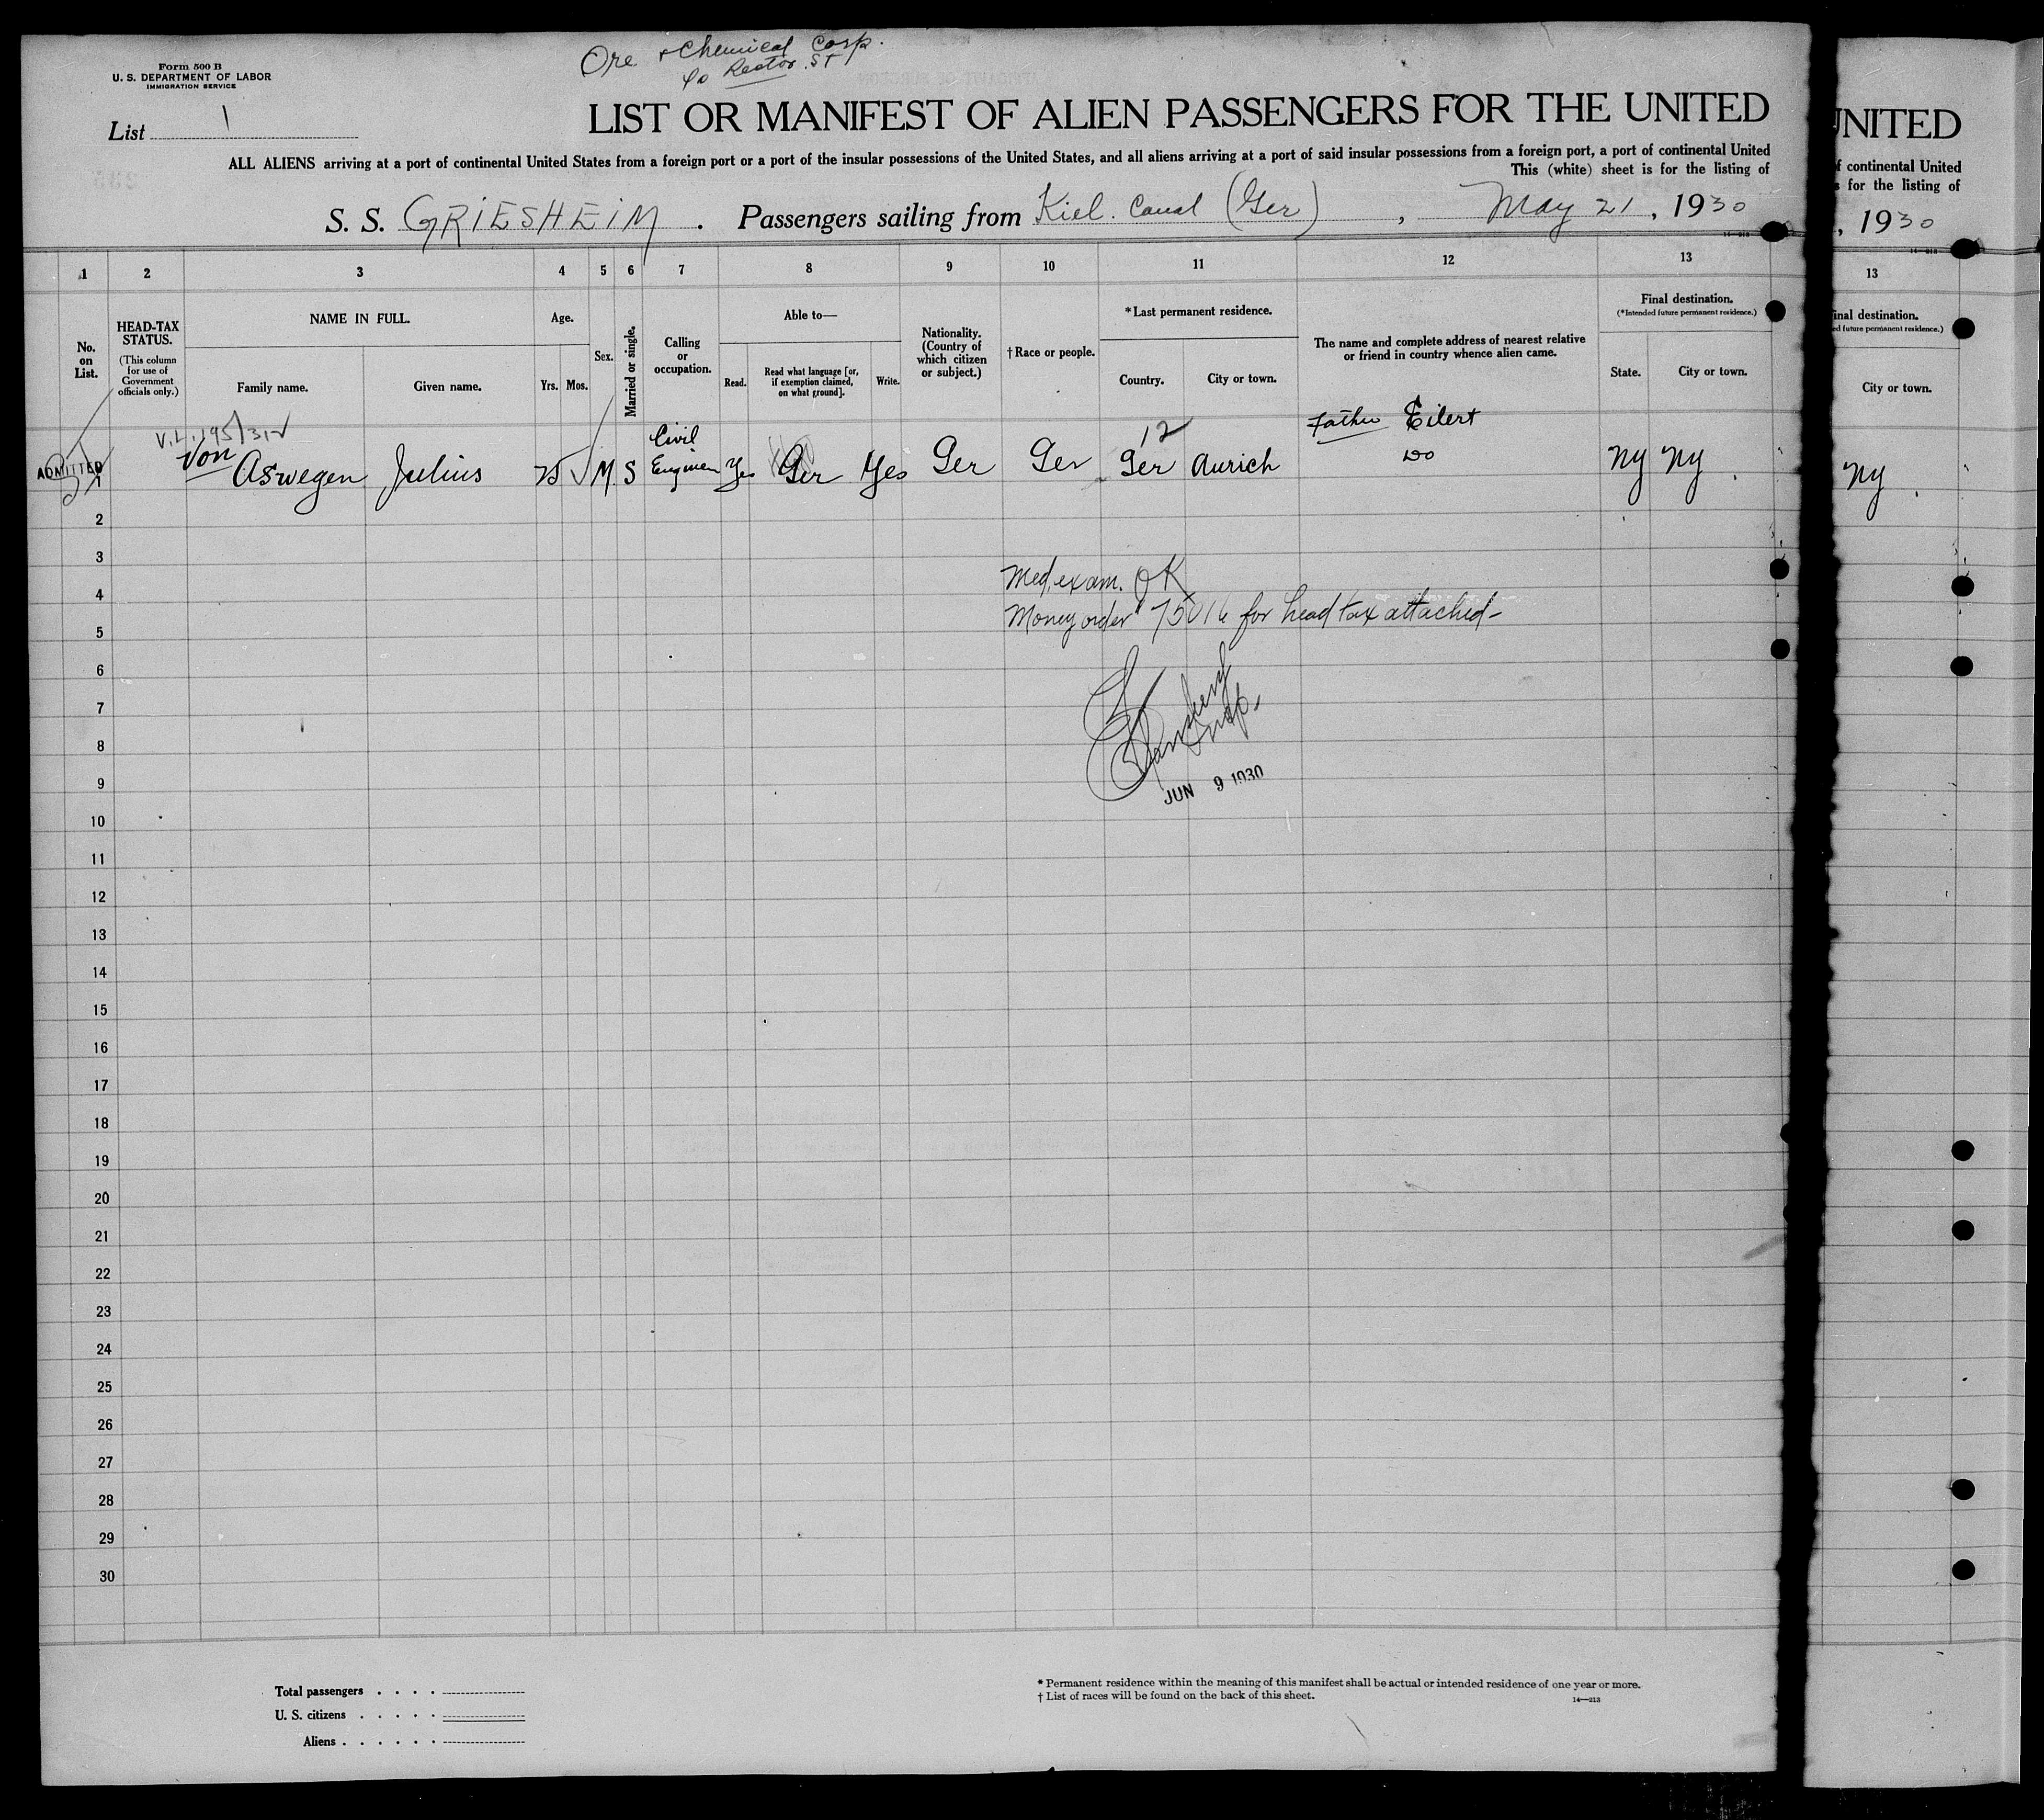 Ore & Chemical Corp.
Rector ST
Form 500 B
U. S. DEPARTMENT OF LABOR
IMMIGRATION SERVICE
List 1
LIST OR MANIFEST OF ALIEN PASSENGERS FOR THE UNITED
ALL ALIENS arriving at a port of continental United States from a foreign port or a port of the insular possessions of the United States, and all aliens arriving at a port of said insular possessions from a foreign port, a port of continental United
This (white) sheet is for the listing of
S. S. GRIESHEIM. Passengers sailing from Kiel. Canal (Ger), May 21, 1930
1 2 3 4 5 6 7 8 9 10 11 12 13
No. on List.
HEAD-TAX STATUS.
(This column for use of Government officials only.)
NAME IN FULL.
Family name. Given name.
Age.
Yrs. Mos.
Sex.
Married or single.
Calling or occupation.
Able to—
Read. Read what language [or, if exemption claimed, on what ground]. Write.
Nationality. (Country of which citizen or subject.)
† Race or people.
*Last permanent residence.
Country. City or town.
The name and complete address of nearest relative or friend in country whence alien came.
Final destination.
(*Intended future permanent residence.)
State. City or town.
V.L. 195/31
12
Father Eilert
ADMITTED 1 Von Aswegen Julius 25 M S Civil Engineer Yes Ger Yes Ger Ger Ger Aurich Do NY NY
2
3
Med. exam. OK
4
Money order 75016 for head tax attached-
5
6
7
8
Insp.
9
JUN 9 1930
10
11
12
13
14
15
16
17
18
19
20
21
22
23
24
25
26
27
28
29
30
Total passengers . . . .
U. S. citizens . . . . .
Aliens . . . . . .
* Permanent residence within the meaning of this manifest shall be actual or intended residence of one year or more.
† List of races will be found on the back of this sheet.
14—213
UNITED
of continental United
s for the listing of
, 1930
13
inal destination.
ed future permanent residence.)
City or town.
NY